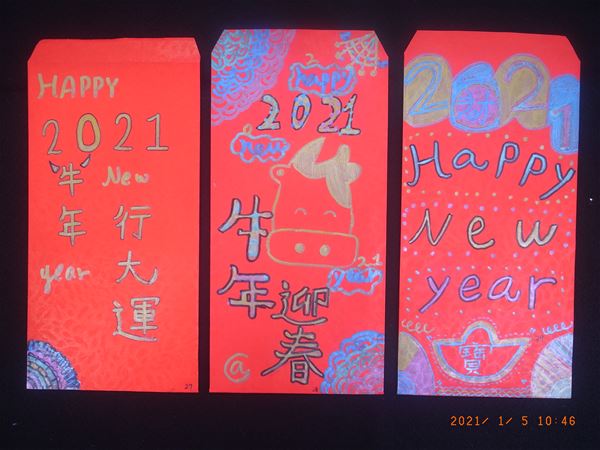 HAPPY
2021
牛年
New
year
行大運
27
2
happy
2021
new
牛年
21
year
迎春
@
2021
Happy
New
year
寶
2021/ 1/ 5 10:46